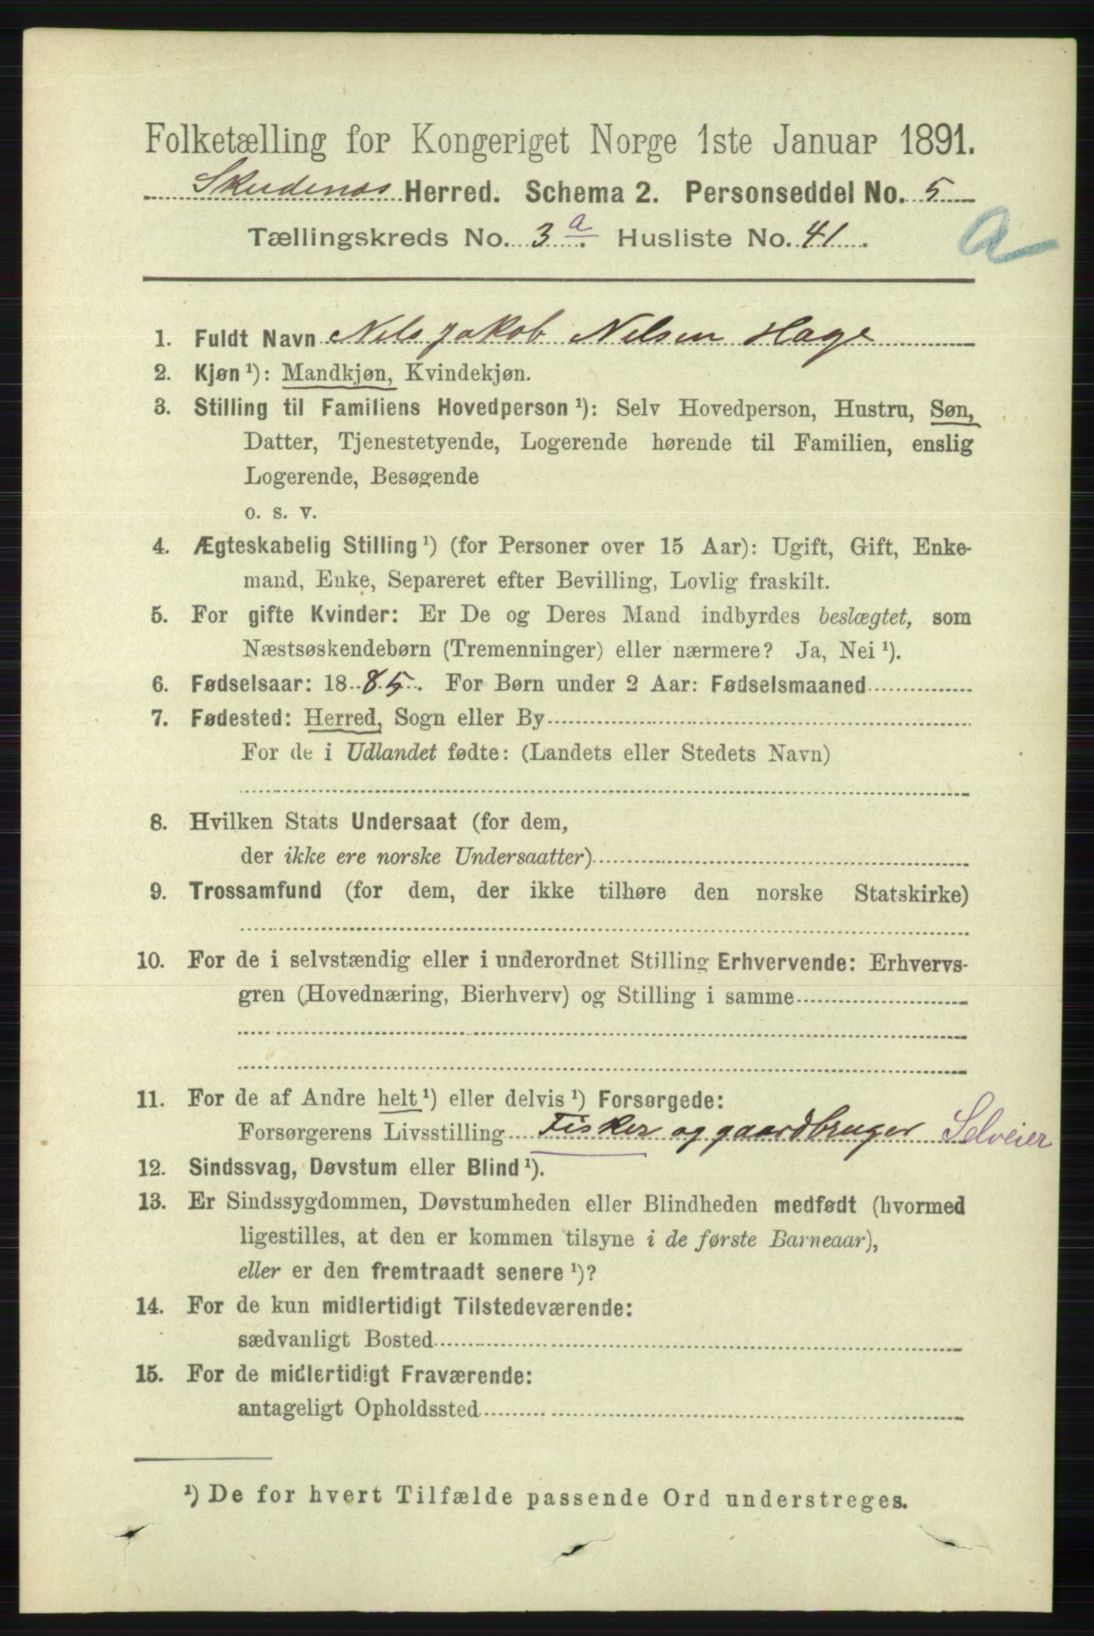 Folketælling for Kongeriget Norge 1ste Januar 1891.
Skudenæs Herred. Schema 2. Personseddel No. 5
Tællingskreds No. 3 a. Husliste No. 41.
a
1. Fuldt Navn Nels Jakob Nelsen Hage
2. Kjøn ¹): Mandkjøn, Kvindekjøn.
3. Stilling til Familiens Hovedperson ¹): Selv Hovedperson, Hustru, Søn,
Datter, Tjenestetyende, Logerende hørende til Familien, enslig
Logerende, Besøgende
o. s. v.
4. Ægteskabelig Stilling ¹) (for Personer over 15 Aar): Ugift, Gift, Enke-
mand, Enke, Separeret efter Bevilling, Lovlig fraskilt.
5. For gifte Kvinder: Er De og Deres Mand indbyrdes beslægtet, som
Næstsøskendebørn (Tremenninger) eller nærmere? Ja, Nei ¹).
6. Fødselsaar: 1885. For Børn under 2 Aar: Fødselsmaaned
7. Fødested: Herred, Sogn eller By
For de i Udlandet fødte: (Landets eller Stedets Navn)
8. Hvilken Stats Undersaat (for dem,
der ikke ere norske Undersaatter)
9. Trossamfund (for dem, der ikke tilhøre den norske Statskirke)
10. For de i selvstændig eller i underordnet Stilling Erhvervende: Erhvervs-
gren (Hovednæring, Bierhverv) og Stilling i samme
11. For de af Andre helt ¹) eller delvis ¹) Forsørgede:
Forsørgerens Livsstilling Fisker og gaardbruger Selveier
12. Sindssvag, Døvstum eller Blind ¹).
13. Er Sindssygdommen, Døvstumheden eller Blindheden medfødt (hvormed
ligestilles, at den er kommen tilsyne i de første Barneaar),
eller er den fremtraadt senere ¹)?
14. For de kun midlertidigt Tilstedeværende:
sædvanligt Bosted
15. For de midlertidigt Fraværende:
antageligt Opholdssted
¹) De for hvert Tilfælde passende Ord understreges.